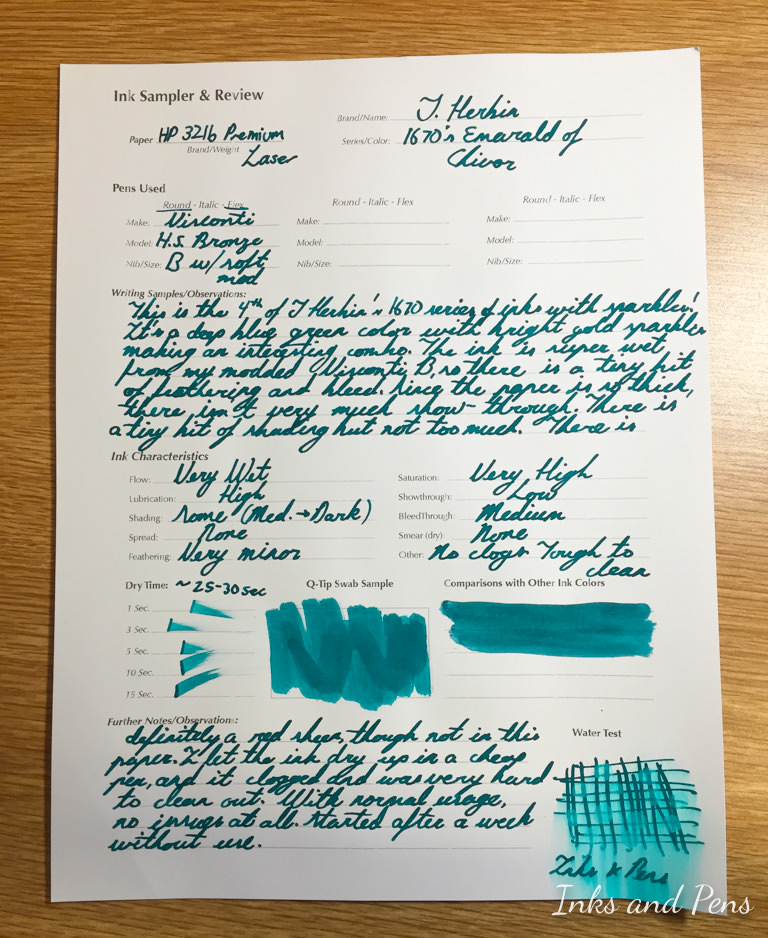 Ink Sampler & Review
Brand/Name: J. Herbin
Paper HP 32lb Premium
Brand/Weight Laser
Series/Color: 1670's Emerald of
Chivor
Pens Used
Round - Italic - Flex
Make: Visconti
Model: H.S. Bronze
Nib/Size: B w/ soft
mod
Round - Italic - Flex
Make:
Model:
Nib/Size:
Round - Italic - Flex
Make:
Model:
Nib/Size:
Writing Samples/Observations:
This is the 4th of J Herbin's 1670 series of inks with sparkles!
It's a deep blue green color with bright gold sparkles
making an interesting combo. The ink is super wet
from my modded Visconti B, so there is a tiny bit
of feathering and bleed. Since the paper is so thick,
there isn't very much show-through. There is
a tiny bit of shading but not too much. There is
Ink Characteristics
Flow: Very Wet
Lubrication: High
Shading: Some (Med.→Dark)
Spread: None
Feathering: Very minor
Saturation: Very High
Showthrough: Low
BleedThrough: Medium
Smear (dry): None
Other: No clogs Tough to
clean
Dry Time: ~25-30sec
1 Sec.
3 Sec.
5 Sec.
10 Sec.
15 Sec.
Q-Tip Swab Sample
Comparisons with Other Ink Colors
Further Notes/Observations:
definitely a red sheen, though not in this
paper. I let the ink dry up in a cheap
pen, and it clogged and was very hard
to clean out. With normal usage,
no issues at all. Started after a week
without use.
Water Test
Inks & Pens
Inks and Pens